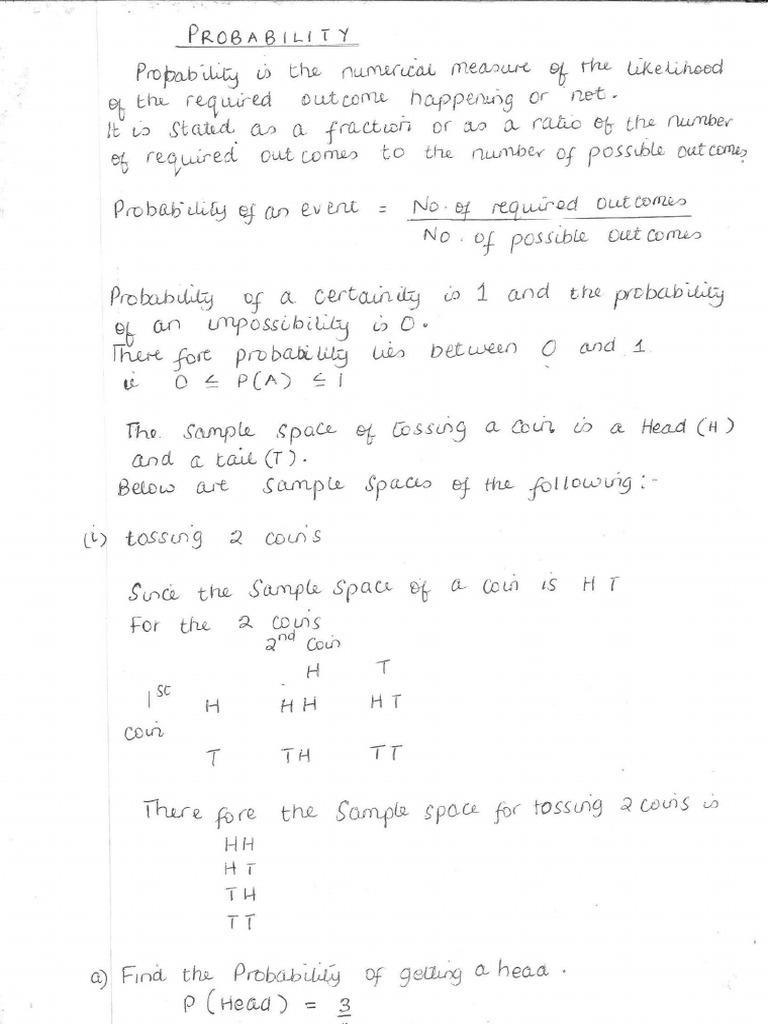 PROBABILITY
Probability is the numerical measure of the likelihood
of the required outcome happening or not.
It is stated as a fraction or as a ratio of the number
of required outcomes to the number of possible outcomes
Probability of an event = No. of required outcomes
No. of possible outcomes
Probability of a certainity is 1 and the probability
of an impossibility is 0.
There fore probability lies between 0 and 1
ie 0 ≤ P(A) ≤ 1
The sample space of tossing a coin is a Head (H)
and a tail (T).
Below are sample spaces of the following:-
(i) tossing 2 coins
Since the sample space of a coin is H T
For the 2 coins
2nd coin
H T
1st H HH HT
coin
T TH TT
There fore the sample space for tossing 2 coins is
HH
HT
TH
TT
a) Find the Probability of getting a head.
P (Head) = 3